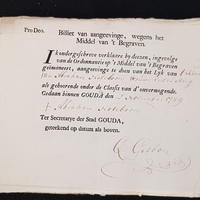 Pro Deo. Billiet van aangeevinge, wegens het
Middel van 't Begraven.
IK ondergeschreve verklaare by deezen, ingevolge
van de Ordonnantie op 't Middel van 't Begraven
geëmaneert, aangeevinge te doen van het Lyk van
van Abraham
als gehoorende onder de Classis van d'onvermogende.
Gedaan binnen GOUDA den 2 November
Abraham
Ter Secretarye der Stad GOUDA,
geteekend op datum als boven.